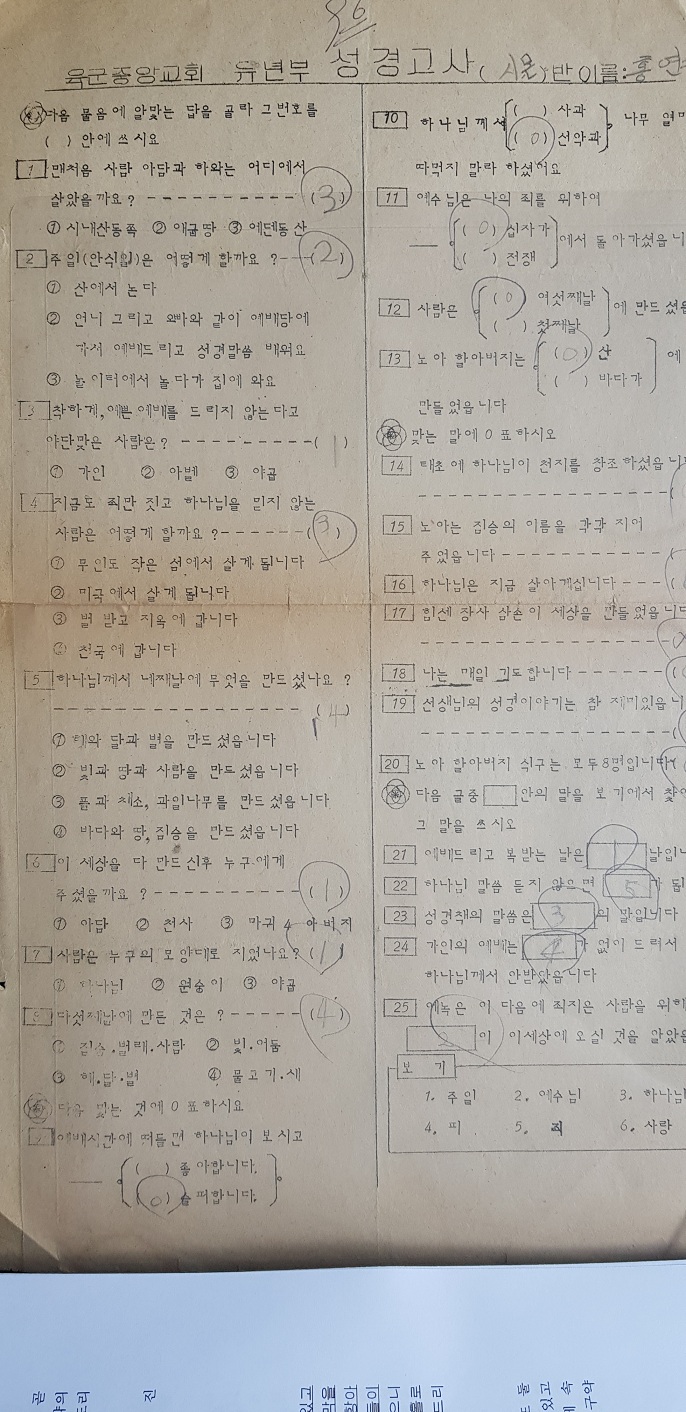 육군중앙교회 유년부 성경고사 ( ) 반 이름: 홍
다음 물음에 알맞는 답을 골라 그 번호를
( ) 안에 쓰시요
1 맨처음 사람 아담과 하와는 어디에서
살았을까요? ---------- (3)
① 시내산동쪽 ② 애굽땅 ③ 에덴동산
2 주일(안식일)은 어떻게 할까요? --- (2)
① 산에서 논다
② 언니 그리고 오빠와 같이 예배당에
가서 예배드리고 성경말씀 배워요
③ 놀이터에서 놀다가 집에 와요
3 착하게, 예쁜 예배를 드리지 않는다고
야단맞은 사람은? --------- (1)
① 가인 ② 아벨 ③ 야곱
4 지금도 죄만 짓고 하나님을 믿지 않는
사람은 어떻게 할까요? ------ (3)
① 무인도 작은 섬에서 살게 됩니다
② 미국에서 살게 됩니다
③ 벌 받고 지옥에 갑니다
④ 천국에 갑니다
5 하나님께서 네째날에 무엇을 만드셨나요?
----------------- (4)
① 해와 달과 별을 만드셨읍니다
② 빛과 땅과 사람을 만드셨읍니다
③ 풀과 채소, 과일나무를 만드셨읍니다
④ 바다와 땅, 짐승을 만드셨읍니다
6 이 세상을 다 만드신후 누구에게
주셨을까요? ---------- (1)
① 아담 ② 천사 ③ 마귀 4 아버지
7 사람은 누구의 모양대로 지었나요? (1)
① 하나님 ② 원숭이 ③ 야곱
8 다섯째날에 만든 것은? ----- (4)
① 짐승.벌레.사람 ② 빛.어둠
③ 해.달.별 ④ 물고기.새
다음 맞는 것에 O 표하시요
9 예배시간에 떠들면 하나님이 보시고
( ) 좋아합니다.
(O) 슬퍼합니다.
10 하나님께서 ( ) 사과
(O) 선악과 나무 열매
따먹지 말라 하셨어요
11 예수님은 나의 죄를 위하여
(O) 십자가
( ) 전쟁 에서 돌아가셨읍니
12 사람은 (O) 여섯째날
( ) 첫째날 에 만드셨읍
13 노아 할아버지는 (O) 산
( ) 바다가 에
만들었읍니다
맞는 말에 O 표하시오
14 태초에 하나님이 천지를 창조하셨읍니다
15 노아는 짐승의 이름을 각각 지어
주었읍니다 -----------
16 하나님은 지금 살아계십니다 ---
17 힘센 장사 삼손이 세상을 만들었읍니다
18 나는 매일 기도합니다 ------
19 선생님의 성경이야기는 참 재미있읍니
20 노아 할아버지 식구는 모두 8명입니다
다음 글중 안의 말을 보기에서 찾
그 말을 쓰시오
21 예배드리고 복받는 날은 1 날입니
22 하나님 말씀 듣지 않으면 5 가 됩
23 성경책의 말씀은 3 의 말입니다
24 가인의 예배는 4 가 없이 드려서
하나님께서 안받았읍니다
25 에녹은 이 다음에 죄지은 사람을 위해
2 이 이세상에 오실 것을 알았읍
보 기
1. 주일 2. 예수님 3. 하나님
4. 피 5. 죄 6. 사랑